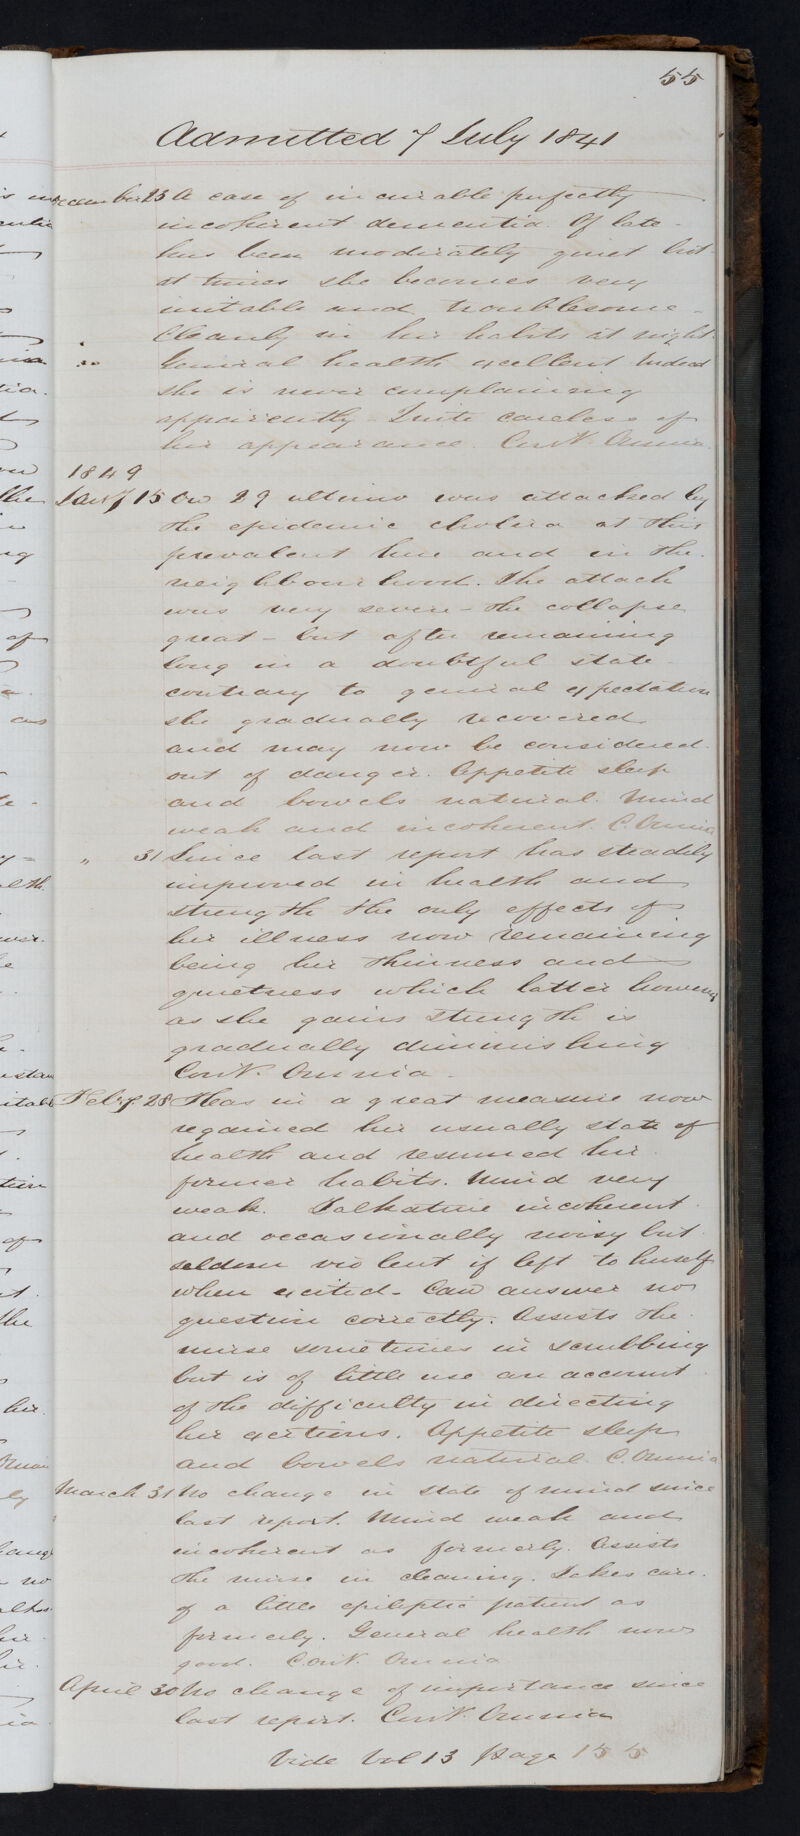 55
Admitted 7 July 1841
December 23 A case of incurable perfectly
incoherent dementia. Of late
has been moderately quiet but
at times she becomes very
irritable and troublesome -
Cleanly in her habits at night.
General health excellent. Indeed
she is never complaining
appairently - Quite careless of
her appearance. Cont. Omnia.
1849
Jany 15 On 29 ultimo was attacked by
the epidemic cholera at this
prevalent here and in the
neighbourhood. The attack
was very severe - the collapse
great - but after remaining
long in a doubtful state
contrary to general expectation
she gradually recovered
and may now be considered
out of danger. Appetite sleep
and bowels natural. Mind
weak and incoherent. C. Omnia
" 31 Since last report has steadily
improved in health and
strength the only effects of
her illness now remaining
being her thinness and
quietness which latter however
as she gains strength is
gradually diminishing
Cont. Omnia -
Feby. 28 Has in a great measure now
regained her usually state of
health and resumed her
former habits. Mind very
weak. Talkative incoherent
and occasionally noisy but
seldom violent if left to herself
when excited - Can answer no
question correctly. Assists the
nurse sometimes in scrubbing
but is of little use on account
of the difficulty in directing
her actions. Appetite sleep
and bowels natural. C. Omnia
March 31 No change in state of mind since
last report. Mind weak and
incoherent as formerly. Assists
the nurse in cleaning. Takes care
of a little epileptic patient as
formerly. General health now
good. Cont. Omnia
April 30 No change of importance since
last report. Cont. Omnia
Vide Vol 13 page 155